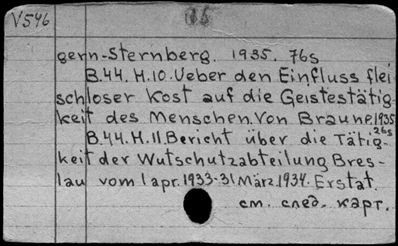 V546
gern-Sternberg. 1935. 76s
B.44. H.10. Ueber den Einfluss flei
schloser Kost auf die Geistestätig-
keit des Menschen. Von Braune. 1935
26s
B.44. H.11. Bericht über die Tätig-
keit der Wutschutzabteilung Bres-
lau vom 1 apr. 1933-31 März 1934. Erstat.
см. след. карт.